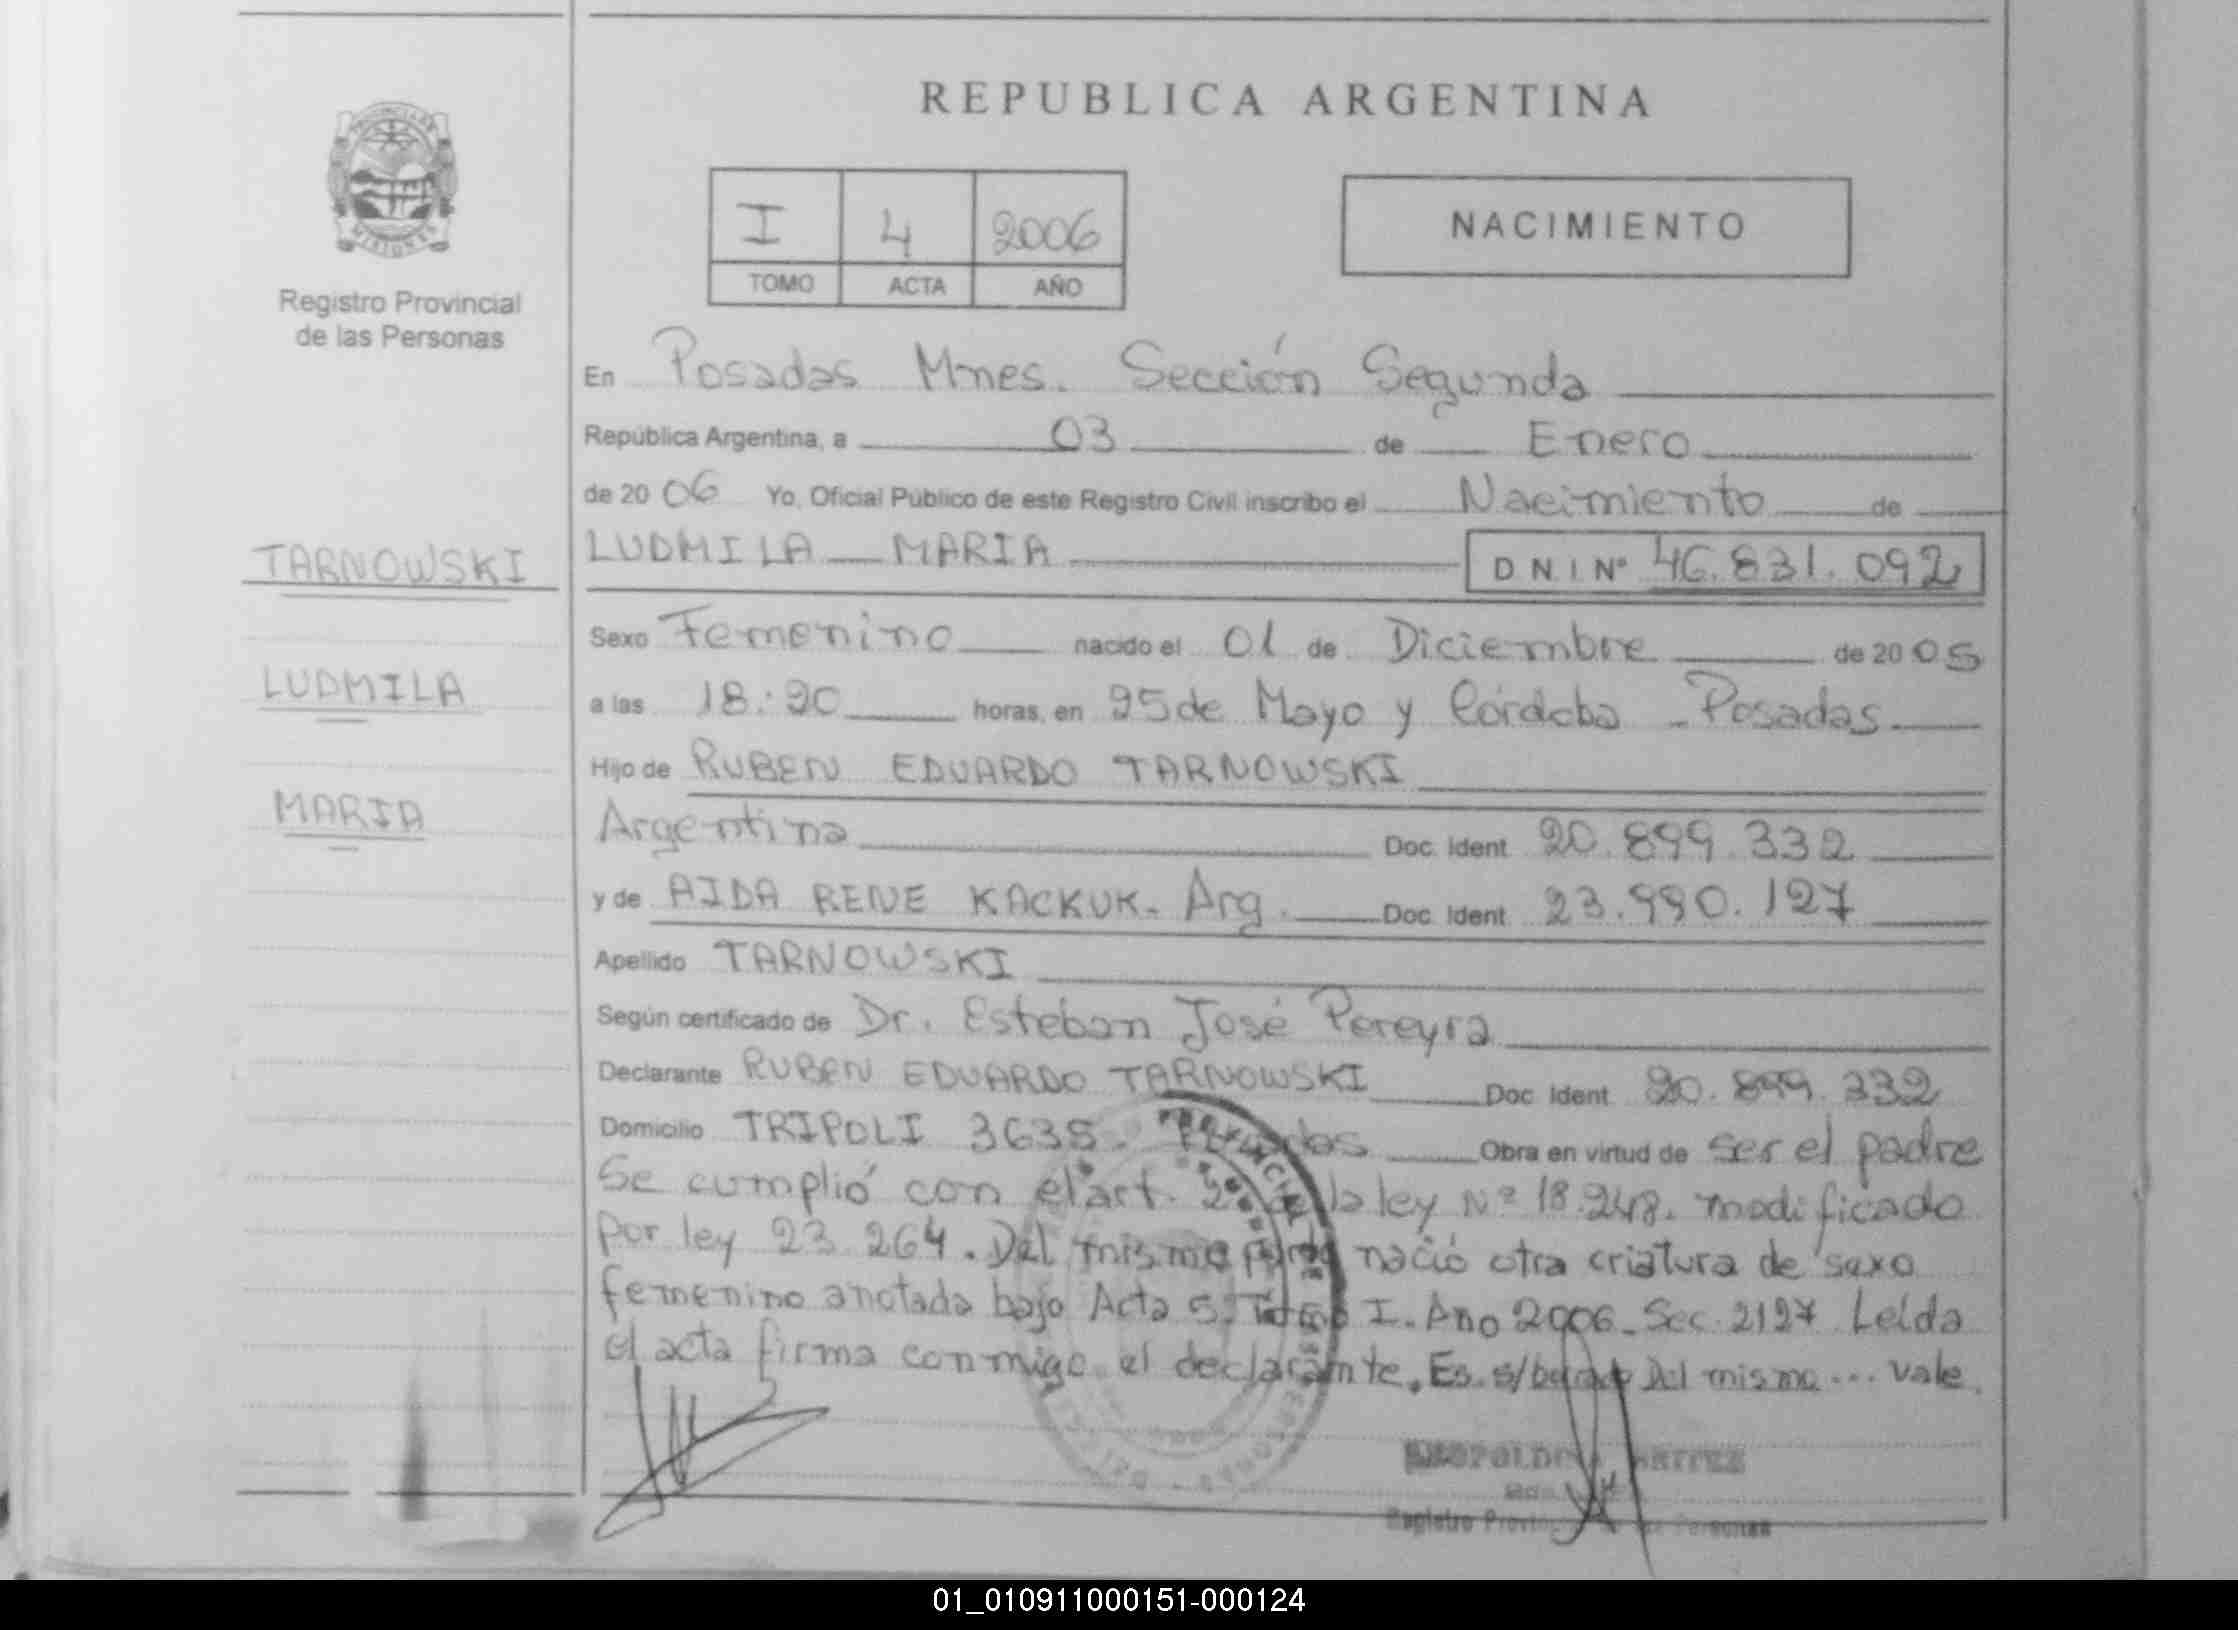 REPUBLICA ARGENTINA
PROVINCIA DE
MISIONES
Registro Provincial
de las Personas
I 4 2006
TOMO ACTA AÑO
NACIMIENTO
En Posadas Mnes. Sección Segunda
República Argentina, a 03 de Enero
de 2006 Yo, Oficial Público de este Registro Civil inscribo el Nacimiento de
TARNOWSKI
LUDMILA MARIA DNI Nº 46.831.092
Sexo Femenino nacido el 01 de Diciembre de 2005
LUDMILA
a las 18:20 horas, en 25 de Mayo y Córdoba - Posadas
Hijo de RUBEN EDUARDO TARNOWSKI
MARIA
Argentina Doc. Ident 20.899.332
y de AIDA RENE KACKUK - Arg. Doc. Ident 23.990.127
Apellido TARNOWSKI
Según certificado de Dr. Esteban José Pereyra
Declarante RUBEN EDUARDO TARNOWSKI Doc Ident 20.899.332
Domicilio TRIPOLI 3635. Posadas Obra en virtud de ser el padre
Se cumplió con el art. 2 de la ley Nº 18.248. modificado
por ley 23.264. Del mismo parto nació otra criatura de sexo
femenino anotada bajo Acta 5. Tomo I. Año 2006. Sec. 2127 Leída
el acta firma conmigo el declarante. Es. s/borrado Del mismo... vale.
Registro Personas
01_010911000151-000124